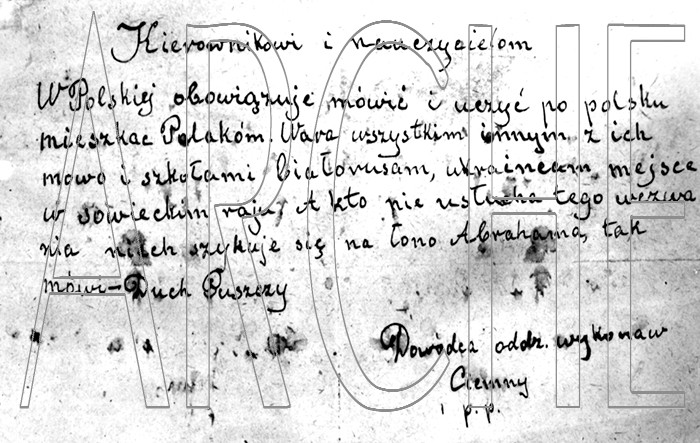 Kierownikowi i nauczycielom
W Polskiej obowiązuje mówić i uczyć po polsku
mieszkac Polaków. Wara wszystkim innym z ich
mowo i szkołami białorusam, ukraincam, mejsce
w sowieckim raju, A kto nie usłucha tego wezwa
nia niech szykuje się na łono Abrahama, tak
mówi – Duch Puszczy
Dowódca oddz. wykonaw
Ciemny
p.p.
ARCHE